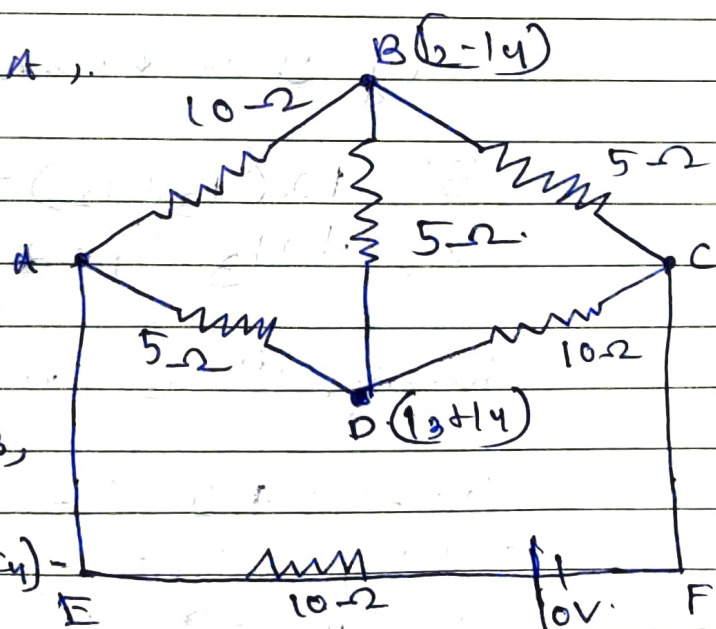 B (I2-I4)
A,.
10Ω
5Ω
5Ω.
A
C
5Ω
10Ω
D.(I3+I4)
E
10Ω
10V.
F